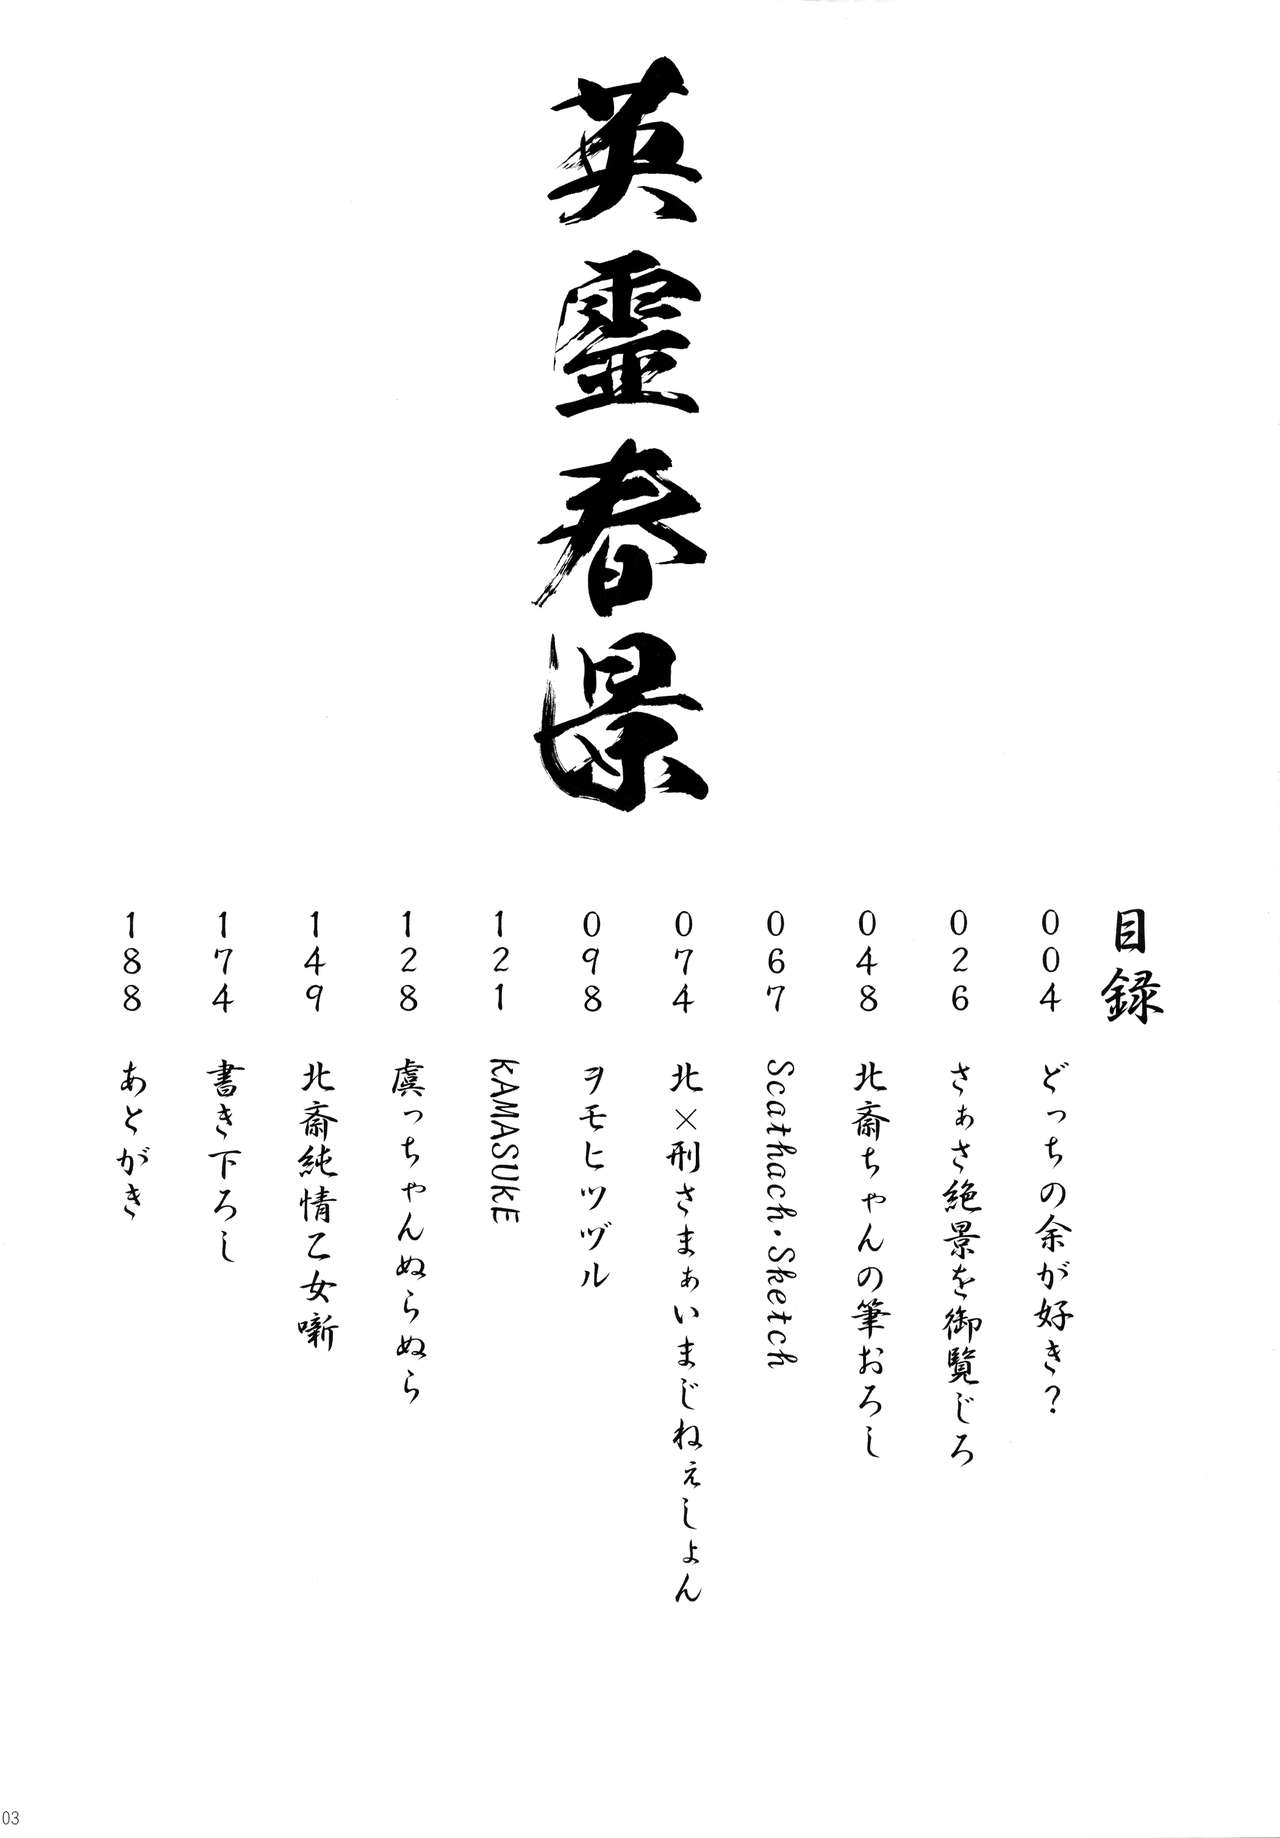 英霊春景
目録
004 どっちの余が好き?
026 さぁさ絶景を御覧じろ
048 北斎ちゃんの筆おろし
067 Scathach・Sketch
074 北×刑さまぁいまじねぇしょん
098 ヲモヒツヅル
121 KAMASUKE
128 虞っちゃんぬらぬら
149 北斎純情乙女噺
174 書き下ろし
188 あとがき
03